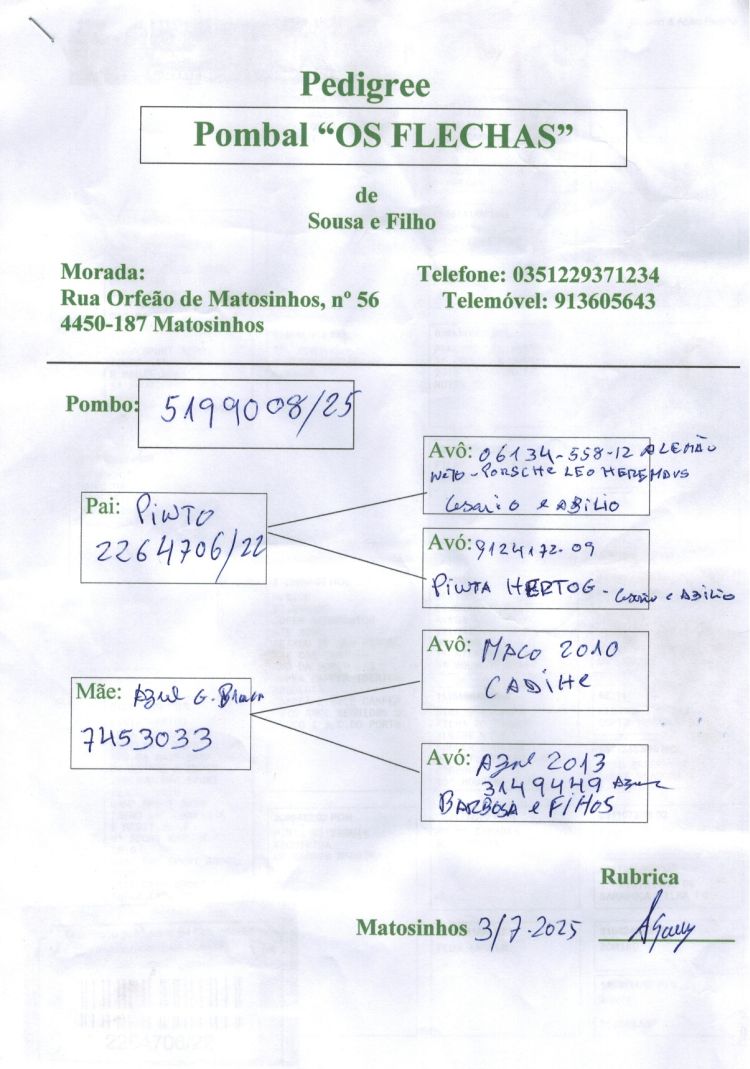 Pedigree
Pombal “OS FLECHAS”
de
Sousa e Filho
Morada:
Rua Orfeão de Matosinhos, nº 56
4450-187 Matosinhos
Telefone: 0351229371234
Telemóvel: 913605643
Pombo: 5199008/25
Pai: PiNTO
2264706/22
Avô: 06134-558-12 ALEMÃO
NETO - PORSCHE LEO HEREMANS
Cesario e ABILIO
Avó: 9124172-09
PiNTA HERTOG - Cesário e ABILIO
Mãe: Azul G.
7453033
Avô: MACO 2010
CADIHE
Avó: Azul 2013
3149449
BARBOSA e FILHOS
Rubrica
Matosinhos 3/7-2025
2264706/22